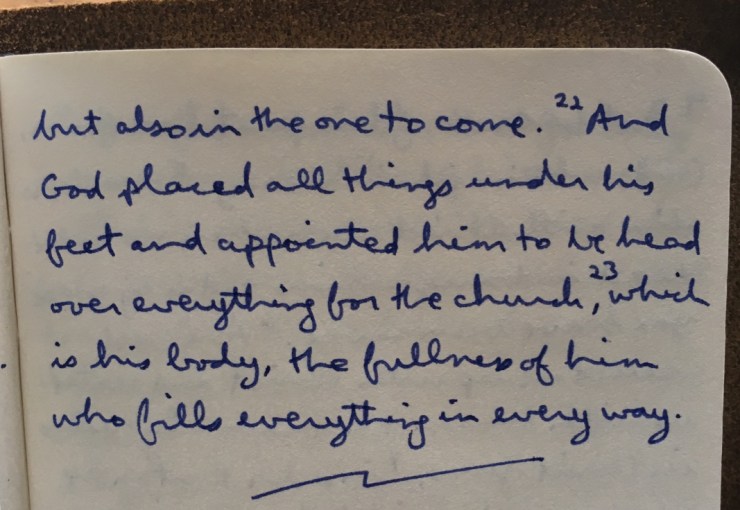 but also in the one to come. 22 And
God placed all things under his
feet and appointed him to be head
over everything for the church, 23 which
is his body, the fullness of him
who fills everything in every way.